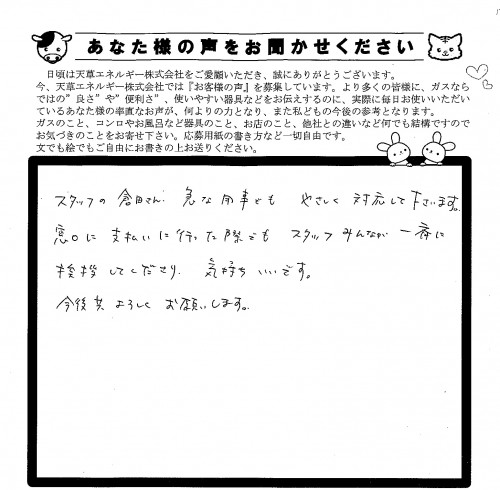 あなた様の声をお聞かせください
日頃は天草エネルギー株式会社をご愛顧いただき、誠にありがとうございます。
今、天草エネルギー株式会社では『お客様の声』を募集しています。より多くの皆様に、ガスなら
ではの”良さ”や”便利さ”、使いやすい器具などをお伝えするのに、実際に毎日お使いいただいて
いるあなた様の率直なお声が、何よりの力となり、また私どもの今後の参考となります。
ガスのこと、コンロやお風呂など器具のこと、お店のこと、他社との違いなど何でも結構ですので
お気づきのことをお寄せ下さい。応募用紙の書き方など一切自由です。
文でも絵でもご自由にお書きの上お送りください。
スタッフの倉田さん 急な用事でも やさしく 対応して下さいます。
窓口に 支払いに行った際でも スタッフみんなが 一斉に
挨拶してくださり、気持ちいいです。
今後共 よろしく お願いします。